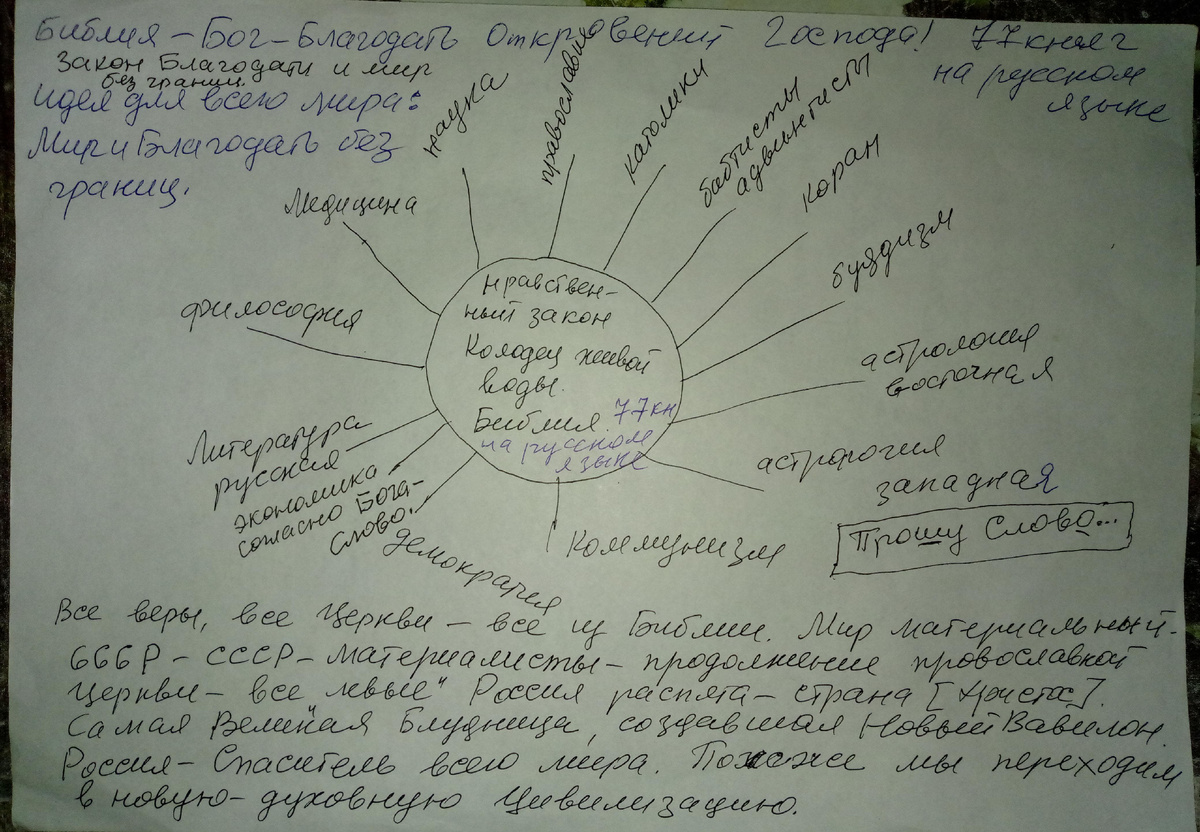 Библия – Бог – Благодать Откровений Господа! 77 книг
на русском
языке
Закон Благодати и мир
без границ.
идея для всего мира:
Мир и Благодать без
границ.
Медицина
наука
православие
католики
баптисты
адвентисты
коран
буддизм
астрология
восточная
астрология
западная
Прошу Слово...
коммунизм
демократия
экономика
согласно Бога-
Слово.
Литература
русская
философия
нравствен-
ный закон
Колодец живой
воды.
Библия. 77 кн
на русском
языке
Все веры, все Церкви – все из Библии. Мир материальный-
666Р – СССР – материалисты – продолжение провославной
церкви – все левые" Россия распята – страна [Христос].
Самая Великая Блудница, создавшая Новый Вавилон.
Россия – Спаситель всего мира. Позже мы переходим
в новую – духовную Цивилизацию.